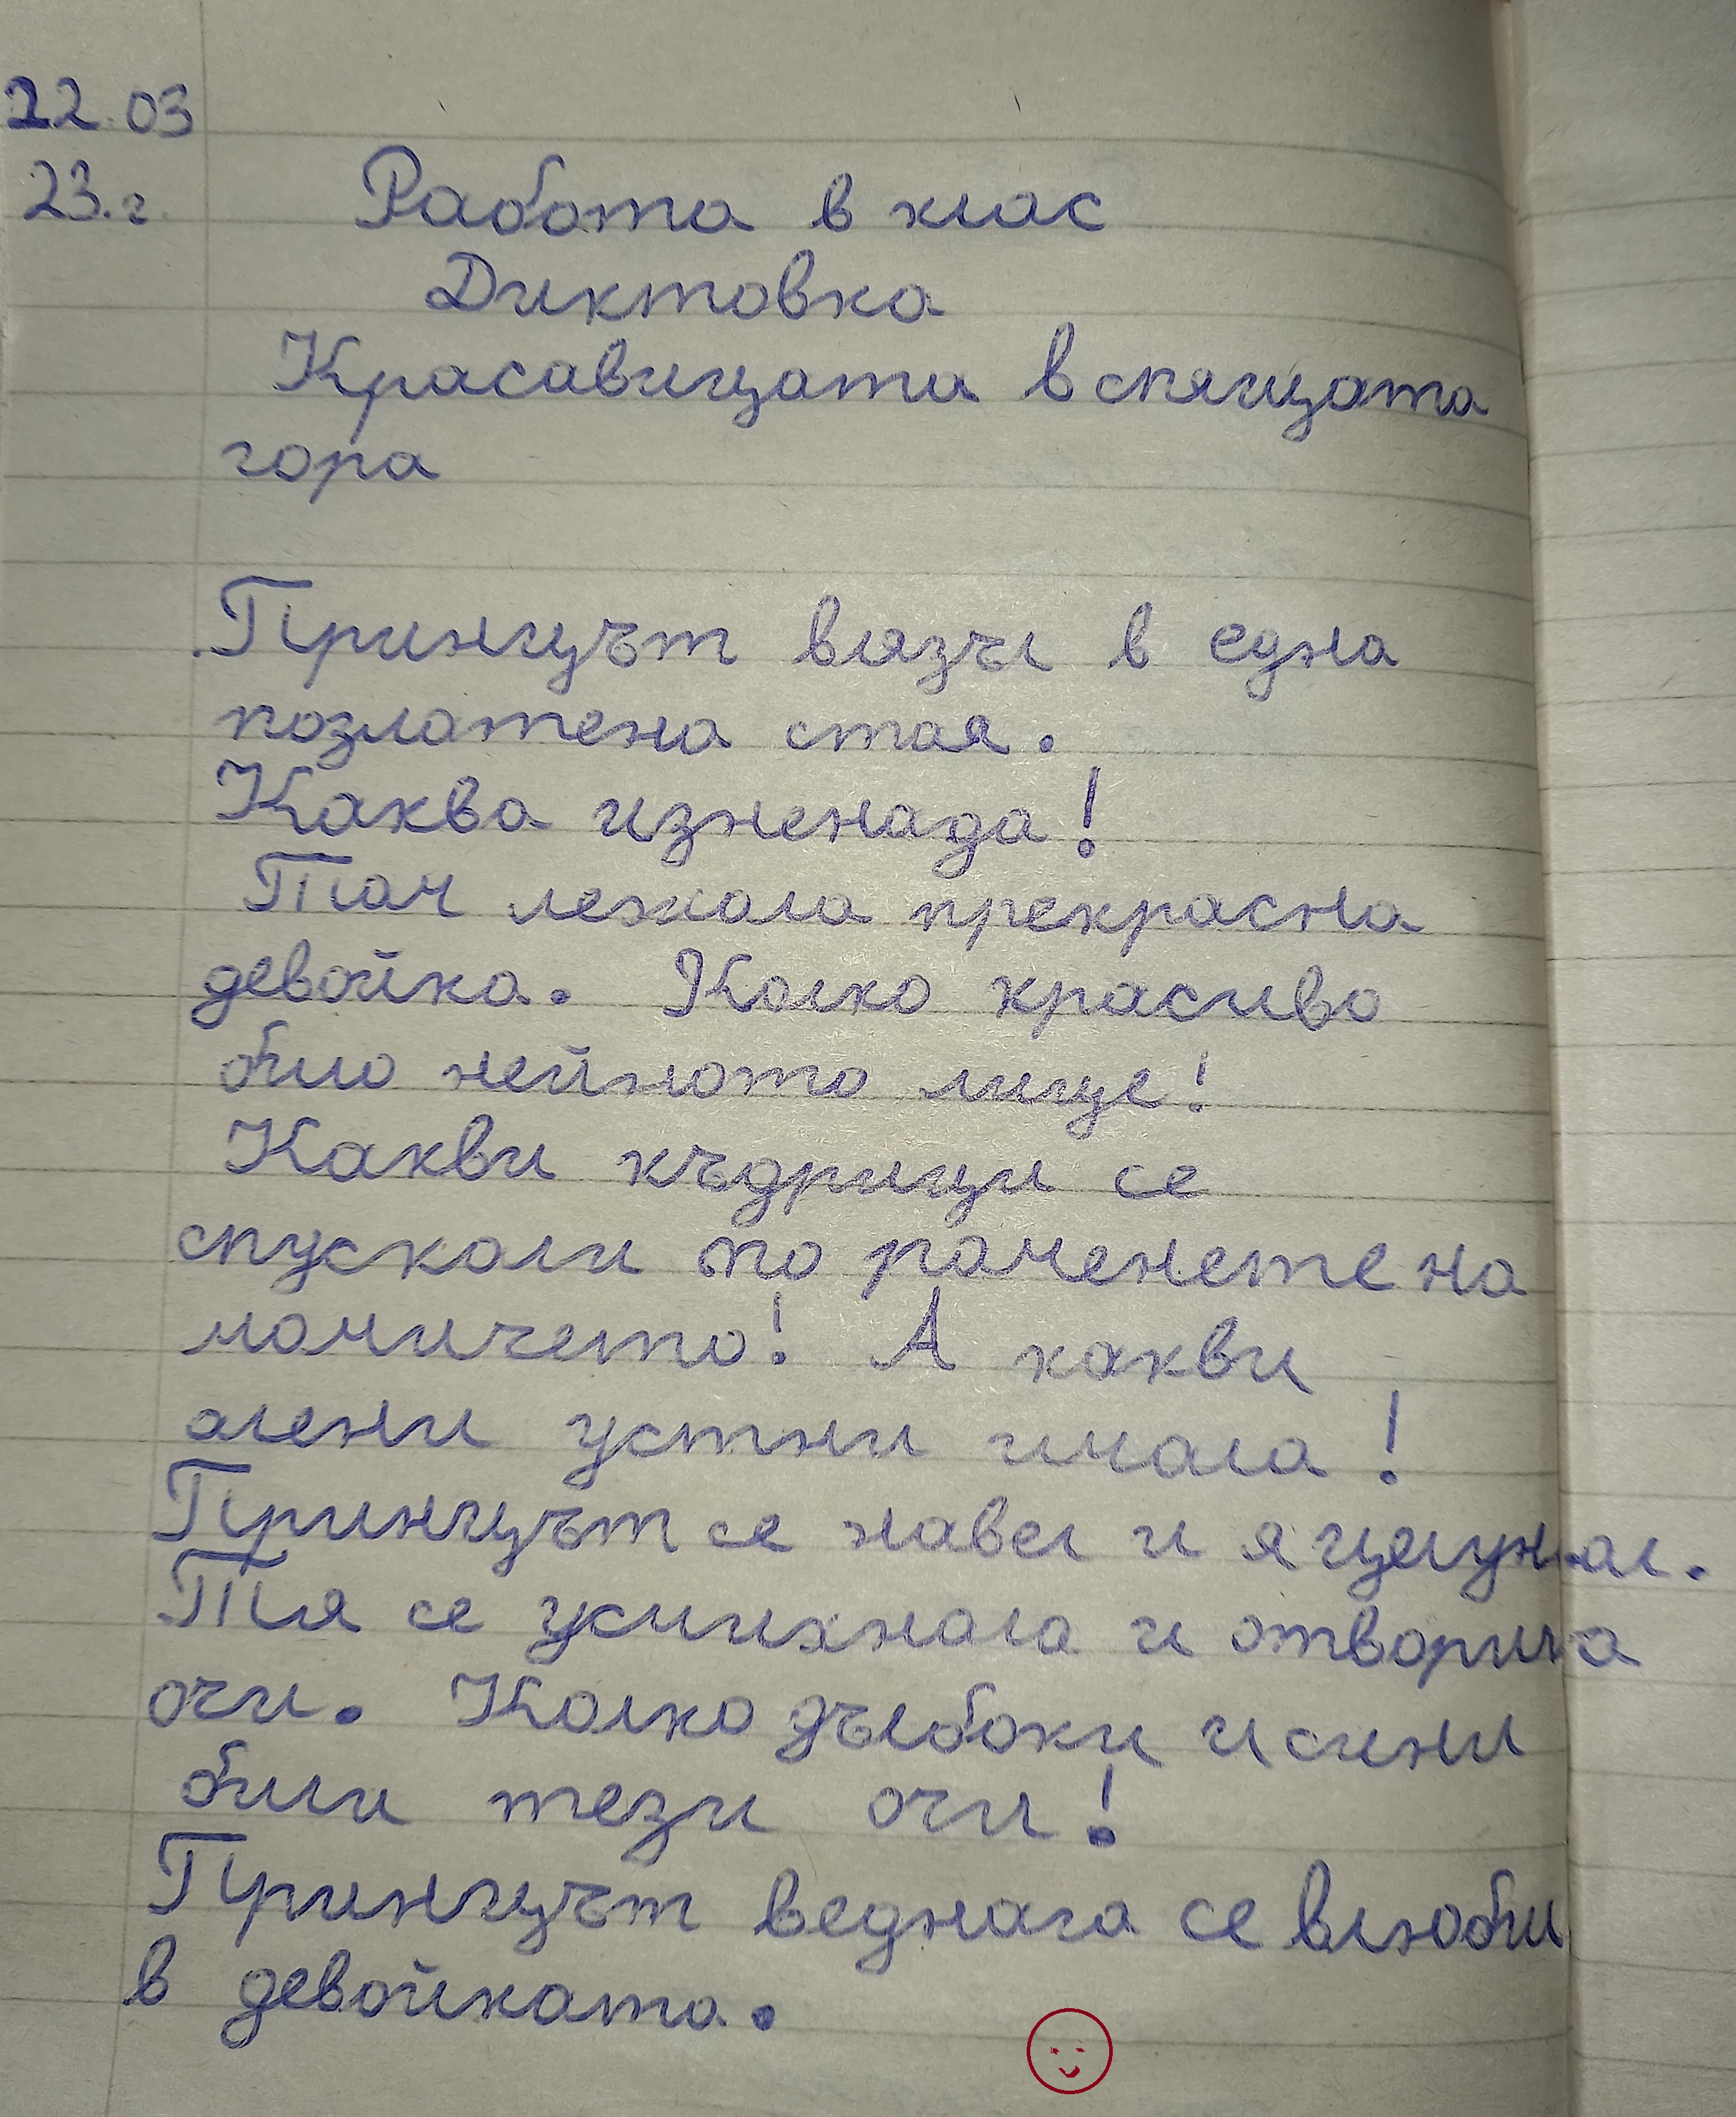 22.03
23.г.
Работа в клас
Диктовка
Красавицата в спящата
гора
Принцът влязъл в една
позлатена стая.
Каква изненада!
Там лежала прекрасна
девойка. Колко красиво
било нейното лице!
Какви къдрици се
спускали по раменете на
момичето! А какви
алени устни имала!
Принцът се навел и я целунал.
Тя се усмихнала и отворила
очи. Колко дълбоки и сини
били тези очи!
Принцът веднага се влюби
в девойката.